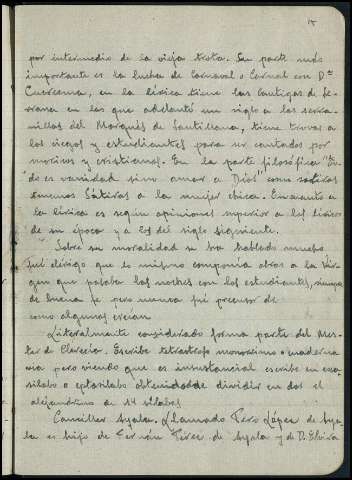 por intermedio de la vieja trota. Su parte más
importante es la lucha de Carnaval o Carnal con Dª
Cuaresma, en la lírica tiene las Cantigas de Se-
rrana en las que adelantó un siglo a las serra-
nillas del Marqués de Santillana, tiene trovas a
los ciegos y estudiantes para ser cantadas por
moriscos y cristianos. En la parte filosófica "To
do es vanidad sino amar a Dios" como satiras
tenemos Sátiras a la mujer chica. En cuanto a
la lírica es según opiniones superior a los líricos
de su época y a los del siglo siguiente.
Sobre su moralidad se ha hablado mucho
fué clérigo que lo mismo componía obras a la Vir-
gen que pasaba las noches con los estudiantes, siempre
de buena fe pero nunca fué precursor de
como algunos creían.
Literalmente considerado forma parte del Mes-
ter de Clerecía. Escribe tetrastrofo monorrimo o cuaderna
via pero viendo que es insustancial escribe en exa-
silabo o eptasilabo dividir en dos el
alejandrino de 14 silabas
Canciller Ayala. Llamado Pero López de Aya-
la es hijo de Fernán Pérez de Ayala y de Dª Elvira